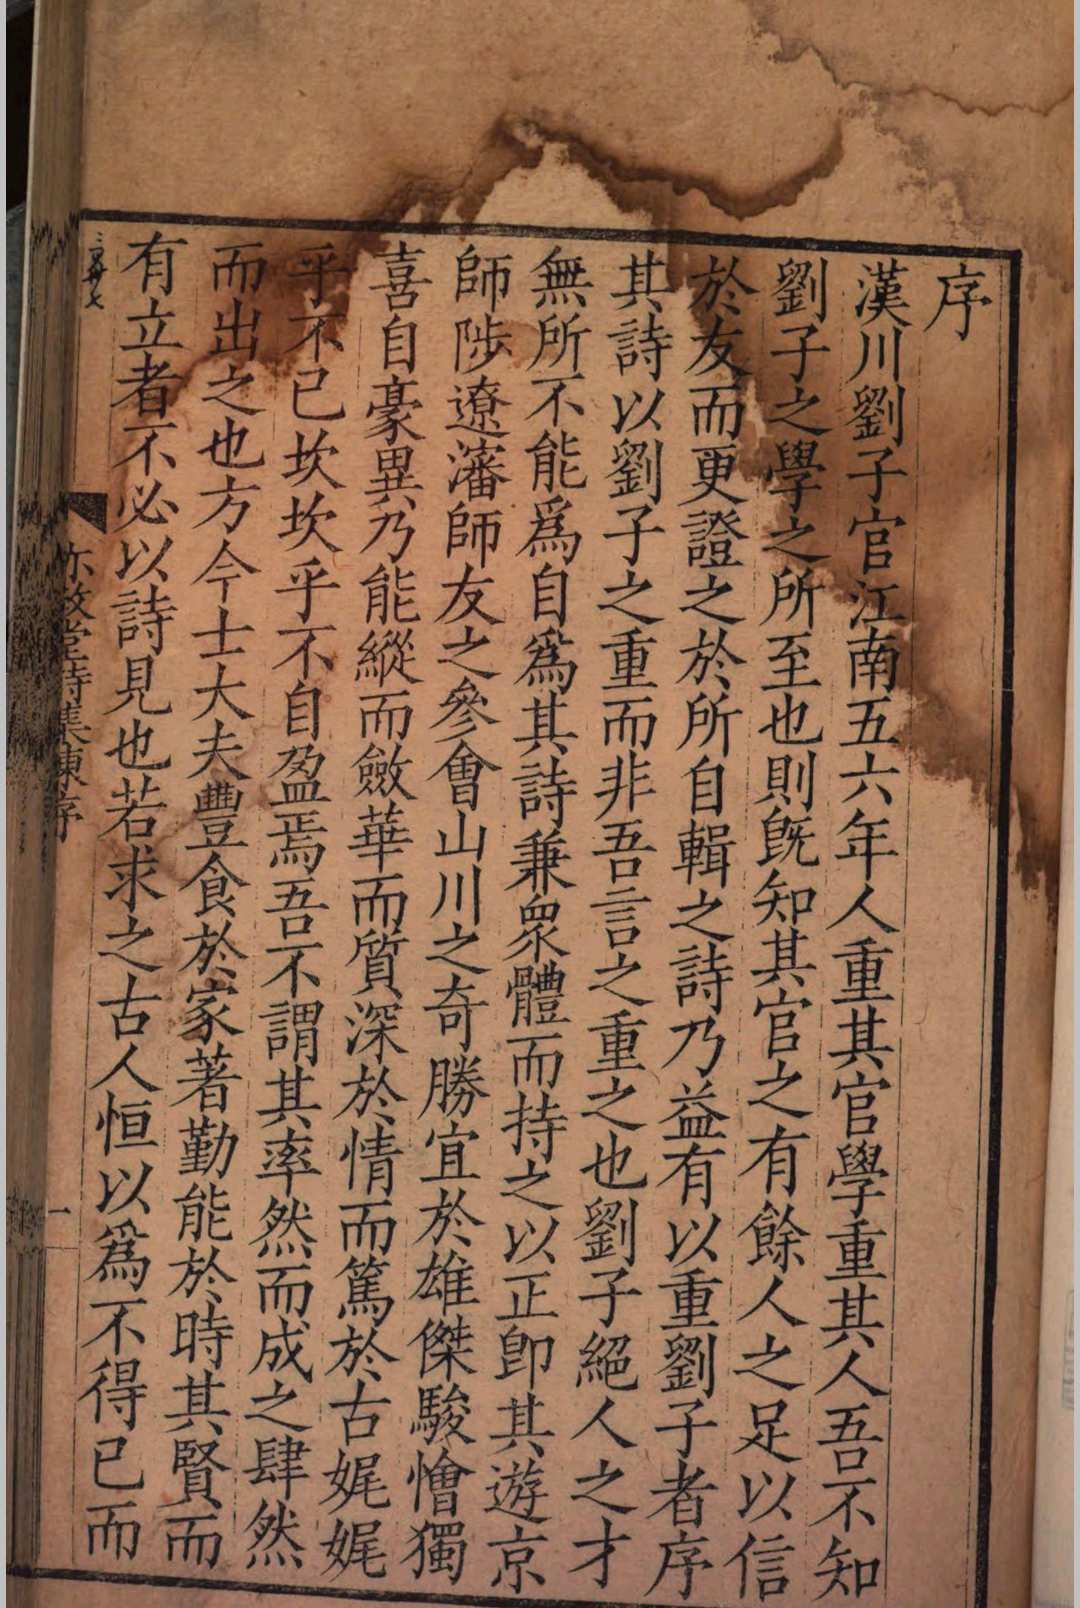 序
漢川劉子官江南五六年人重其官學重其人吾不知
劉子之學之所至也則旣知其官之有餘人之足以信
於友而更證之於所自輯之詩乃益有以重劉子者序
其詩以劉子之重而非吾言之重之也劉子絕人之才
無所不能爲自爲其詩兼眾體而持之以正卽其遊京
師陟遼瀋師友之參會山川之奇勝宜於雄傑駿懀獨
喜自豪異乃能縱而斂華而質深於情而篤於古娓娓
乎不已坎坎乎不自盈焉吾不謂其率然而成之肆然
而出之也方今士大夫豐食於家著勤能於時其賢而
有立者不必以詩見也若求之古人恒以爲不得已而
堂詩集陳序
一